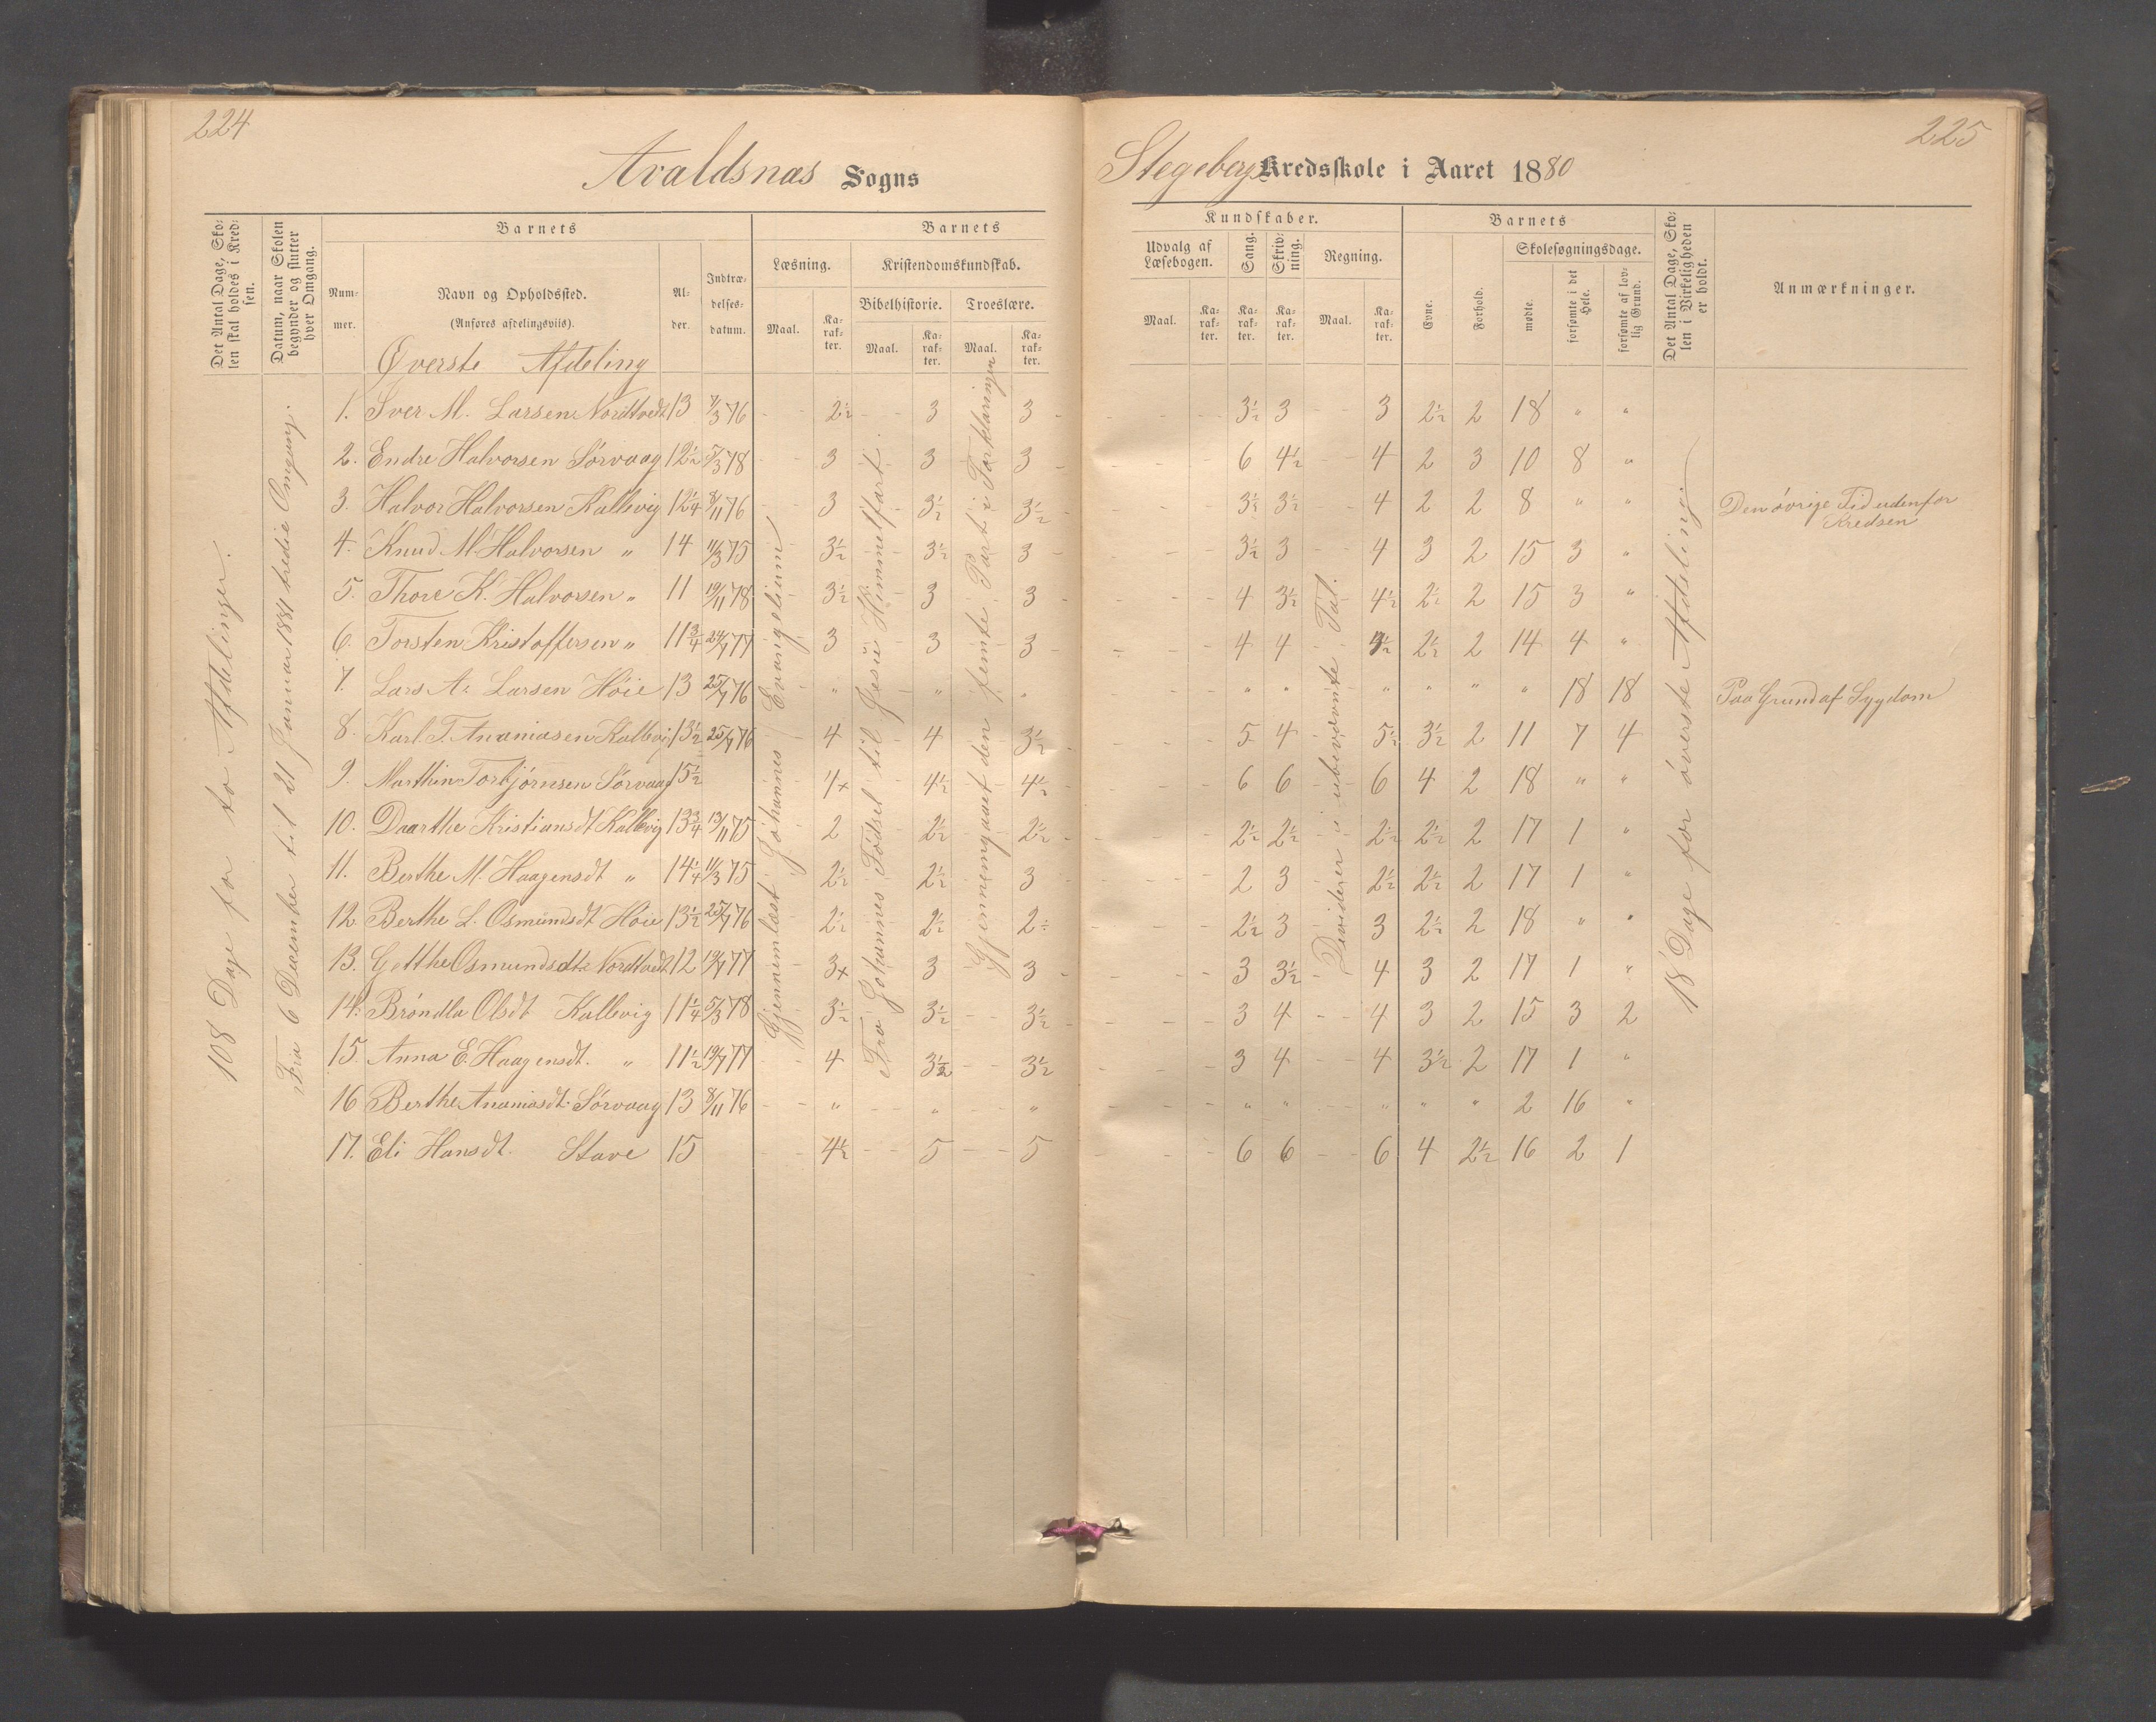 224
225
Avaldsnæs Sogns
Stegebergs Kredsskole i Aaret 1880
Det Antal Dage, Skolen skal holdes i Kredsen.
Datum, naar Skolen begynder og slutter hver Omgang.
Barnets
Nummer.
Navn og Opholdssted.
(Anføres afdelingsviis).
Alder.
Indtrædelsesdatum.
Barnets
Læsning.
Kristendomskundskab.
Maal.
Karakter.
Bibelhistorie.
Troeslære.
Maal.
Karakter.
Maal.
Karakter.
Kundskaber.
Udvalg af Læsebogen.
Sang.
Skrivning.
Regning.
Maal.
Karakter.
Karakter.
Karakter.
Maal.
Karakter.
Barnets
Evne.
Forhold.
Skolesøgningsdage.
mødte.
forsømte i det Hele.
forsømte af lovlig Grund.
Det Antal Dage, Skolen i Virkeligheden er holdt.
Anmærkninger.
Øverste Afdeling
108 Dage for to Afdelinger.
Fra 6 December til 21 Januar 1881 tredie Omgang.
Gjennemlæst Johannes Evangelium
Fra Johannes Fødsel til Jesu Himmelfart.
Gjennemgaaet den femte Part i Forklaringen
Dividerer i ubenævnte Tal.
18 Dage for øverste Afdeling.
1. Iver M. Larsen Nordtvedt 13 7/3 76 2½ 3 3 3½ 3 3 2½ 2 18 " "
2. Endre Halvorsen Sørvaag 12½ 5/3 78 3 3 3 6 4½ 4 2 3 10 8 "
3. Halvor Halvorsen Kallevig 12¼ 8/11 76 3 3½ 3½ 3½ 3½ 4 2 2 8 " " Den øvrige Tid udenfor
Kredsen
4. Knud M. Halvorsen " 14 11/3 75 3½ 3½ 3 3½ 3 4 3 2 15 3 "
5. Thore K. Halvorsen " 11 19/11 78 3½ 3 3 4 3½ 4½ 2½ 2 15 3 "
6. Torsten Kristoffersen " 11¾ 24/7 77 3 3 3 4 4 2½ 2 14 4 "
7. Lars A. Larsen Høie 13 25/7 76 " " " " " " " " " 18 18 Paa Grund af Sygdom
8. Karl T. Ananiasen Kallevig 13½ 25/7 76 4 4 3½ 5 4 5½ 3½ 2 11 7 4
9. Marthin Torbjørnsen Sørvaag 15½ 4+ 4½ 4½ 6 6 6 4 2 18 " "
10. Daarthe Kristiansdt Kallevig 13¾ 13/11 75 2 2½ 2½ 2½ 2½ 2½ 2½ 2 17 1 "
11. Berthe M. Haagensdt " 14¼ 11/3 75 2½ 2½ 3 2 3 2½ 2½ 2 17 1 "
12. Berthe L. Osmundsdt Høie 13½ 25/7 76 2½ 2½ 2½ 2½ 3 3 2½ 2 18 " "
13. Gitthe Osmundsdtr Nordtvedt 12 19/7 77 3+ 3 3 3 3½ 4 3 2 17 1 "
14. Brøndla Olsdt Kallevig 11¼ 5/3 78 3½ 3½ 3½ 3 4 4 3 2 15 3 2
15. Anna E. Haagensdt. " 11½ 19/7 77 4 3½ 3½ 3 4 4 3½ 2 17 1 "
16 Berthe Ananiasdt. Sørvaag 13 8/11 76 " " " " " " " " 2 16 "
17. Eli Hansdt. Stave 15 4½ 5 5 6 6 6 4 2½ 16 2 1